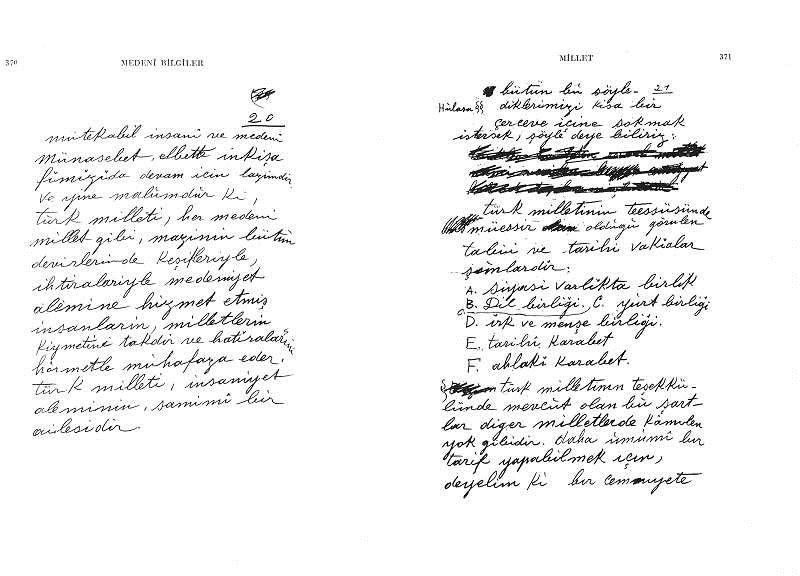 370
MEDENİ BİLGİLER
20
mütekabil insani ve medeni
münasebet, elbette inkişa
fimizida devam için lazimdir
ve yine malûmdur ki,
türk milleti, her medeni
millet gibi, mazinin bütün
devirlerinde keşifleriyle,
ihtiralariyle medeniyet
alemine hizmet etmiş
insanların, milletlerin
kiymetini takdir ve hatiralarini
hürmetle mühafaza eder.
türk milleti, insaniyet
aleminin, samimî bir
ailesidir.
MİLLET
371
bütün bu söyle- 21
Hülasa §§ diklerimizi kisa bir
çerceve içine sokmak
istersek, şöyle deye biliriz:
türk milletinin teessüsünde
müessir oldügü görülen
tabii ve tarihî vakialar
şünlardir:
A. siyasi varlikta birlik
B. Dil birliği, C. yürt birliği
D. irk ve menşe birliği.
E. tarihî karabet
F. ahlakî karabet.
türk milletinin teşekkü-
lünde mevcüt olan bü şart
lar diger milletlerde kâmilen
yok gibidir. daha ümümî bir
tarif yapabilmek için,
deyelim ki bir cemiyete